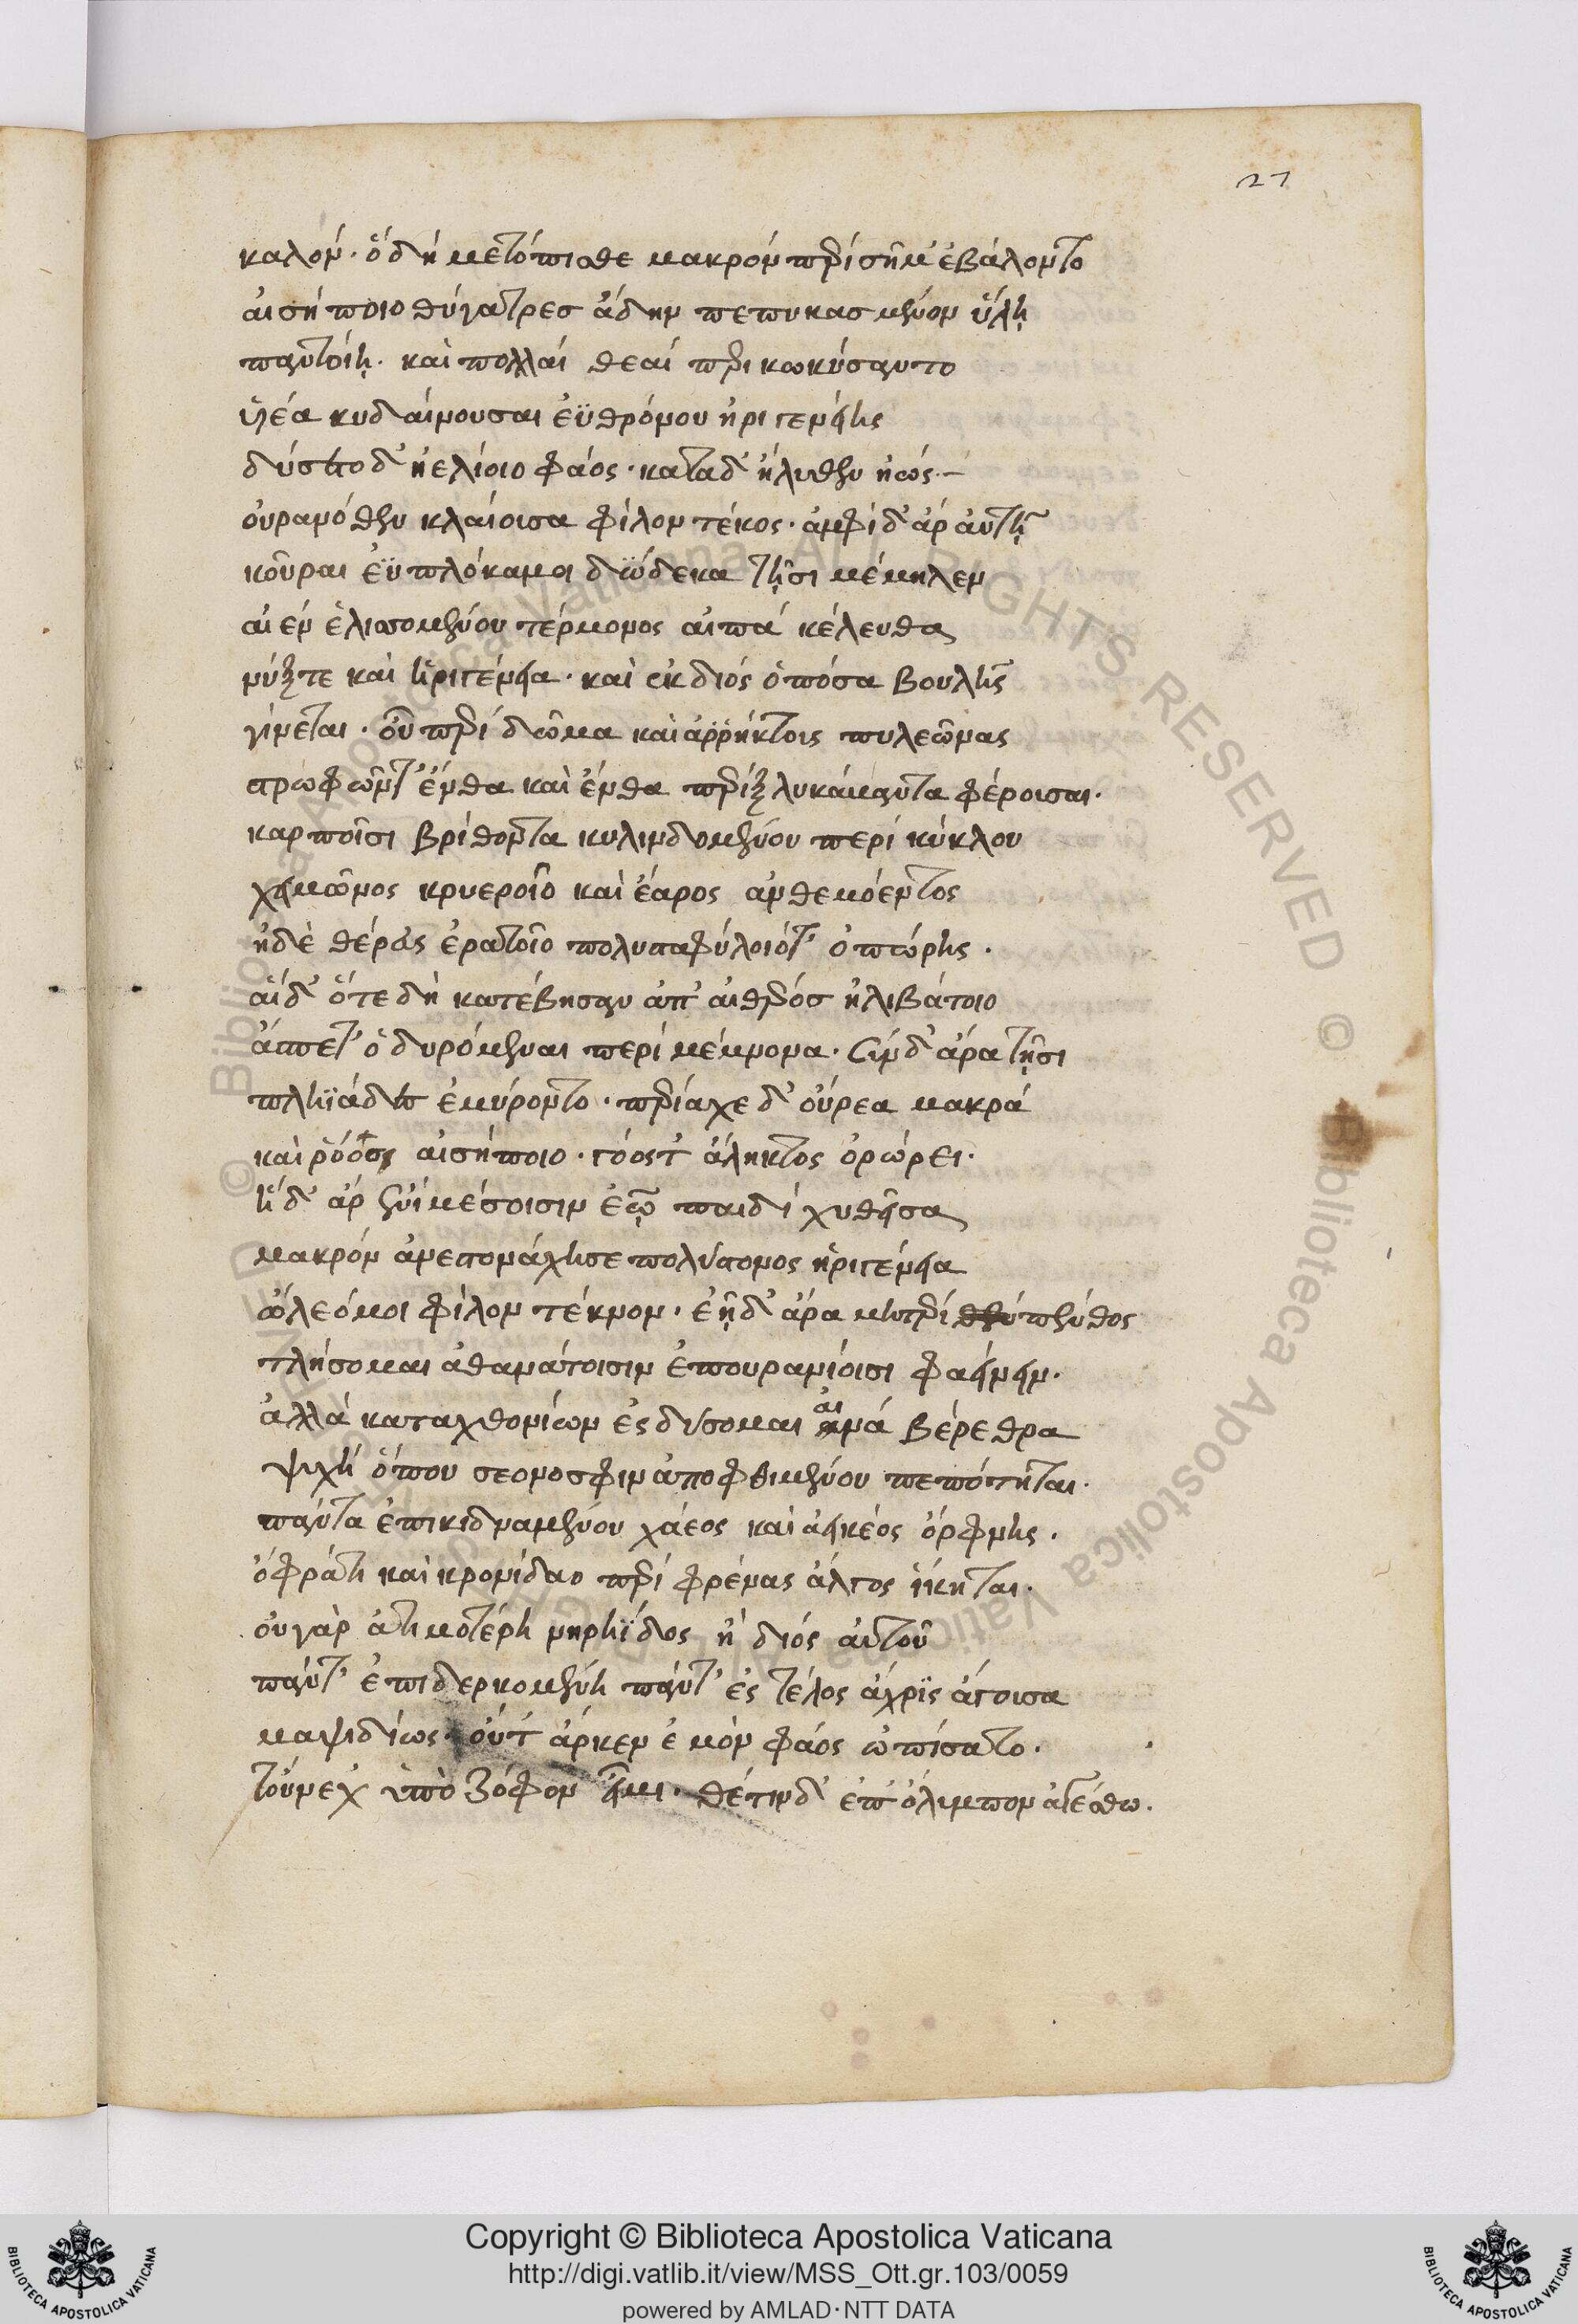 27
καλόν· ὃ δὴ μετόπισθε μακρὸν περὶ σῆμ' ἐβάλοντο
αἰσήποιο θύγατρες ἄδην πεπυκασμένον ὕλῃ
παντοίῃ. καὶ πολλαὶ θεαὶ περικωκύσαντο
υἱέα κυδαίνουσαι ἐϋθρόνου ἠριγενείης
δύσετο δ' ἠελίοιο φάος· κατὰ δ' ἤλυθεν ἠώς·
οὐρανόθεν κλαίοισα φίλον τέκος· ἀμφὶ δ' ἄρ' αὐτῇ
κοῦραι ἐϋπλόκαμοι δϋώδεκα τῇσι μέμηλεν
αἰὲν ἑλισσομένου τέρμονος αἰπὰ κέλευθα
νύξ τε καὶ ἠριγένεια· καὶ ἐκ διός ὁπόσα βουλῆς
γίνεται· οὗ περὶ δῶμα καὶ ἀῤῥήκτοις πυλεῶνας
στρωφῶντ' ἔνθα καὶ ἔνθα πέριξ λυκάβαντα φέροισαι·
καρποῖσι βρίθοντα κυλινδομένου περὶ κύκλου
χειμῶνος κρυεροῖο καὶ ἔαρος ἀνθεμόεντος
ἠδὲ θέρος ἐρατοῖο πολυσταφύλοιό τ' ὀπώρης·
αἳ δ' ὅτε δὴ κατέβησαν ἀπ' αἰθέρος ἠλιβάτοιο
ἄσπετ' ὀδυρόμεναι περὶ μέμνονα· σὺν δ' ἄρα τῇσι
πληϊάδες ἐμύροντο· περίαχε δ' οὔρεα μακρὰ
καὶ ῥόος αἰσήποιο· γόος τ' ἄληκτος ὀρώρει·
ἣ δ' ἄρ' ἐνὶ μέσοισιν ἑῷ παιδὶ χυθεῖσα
μακρὸν ἀνεστονάχησε πολύστονος ἠριγένεια
ὤλεό μοι φίλον τέκνον· ἑῇ δ' ἄρα μητρὶ πένθος
τλήσομαι ἀθανάτοισιν ἐπουρανίοισι φαείνειν·
ἀλλὰ καταχθονίων ἐς δύσομαι αἰνὰ βέρεθρα
ψυχὴ ὅπου σεονοσφιν ἀποφθιμένου πεπότηται·
πάντα ἐπικιδναμένου χάεος καὶ ἀεικέος ὄρφνης·
ὄφρά τι καὶ κρονίδαο περὶ φρένας ἄλγος ἵκηται·
οὐ γὰρ ἀτιμοτέρη νηρηΐδος ἢ διός αὐτοῦ
πάντ' ἐπιδερκομένη πάντ' ἐς τέλος ἄχρϊς ἄγοισα
μαψιδίως· οὔτ' ἄρ κεν ἐμὸν φάος ὠπίσατο·
τοὔνεχ' ὑπὸ ζόφον εἶμι· θέτιν δ' ἐπ' ὄλυμπον ἀγέσθω·
© Biblioteca Apostolica Vaticana ALL RIGHTS RESERVED
© Biblioteca Apostolica Vaticana
Copyright © Biblioteca Apostolica Vaticana
http://digi.vatlib.it/view/MSS_Ott.gr.103/0059
powered by AMLAD·NTT DATA
BIBLIOTECA APOSTOLICA VATICANA
BIBLIOTECA APOSTOLICA VATICANA